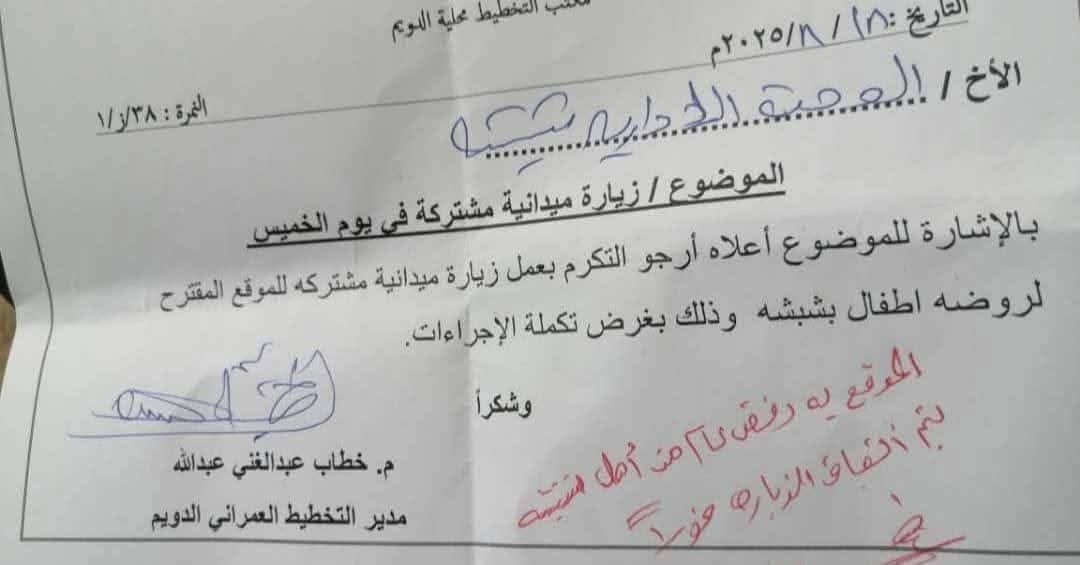 مكتب التخطيط محلية الدويم
التاريخ: ١٨ / ٨ / ٢٠٢٥م
النمرة : ٣٨/ز/١
الأخ / الوحدة الادارية شبشه
الموضوع / زيارة ميدانية مشتركة في يوم الخميس
بالإشارة للموضوع أعلاه أرجو التكرم بعمل زيارة ميدانية مشتركه للموقع المقترح
لروضه اطفال بشبشه وذلك بغرض تكملة الإجراءات.
وشكراً
م. خطاب عبدالغني عبدالله
مدير التخطيط العمراني الدويم
الموقع به رفض تام من أهل شبشه
يتم ايقاف الزياره فوراً